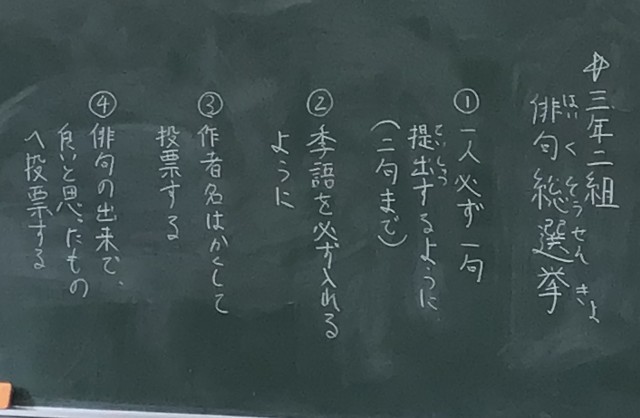 三年二組
俳句総選挙
はいくそうせんきょ
① 一人必ず一句
提出するように
ていしゅつ
(二句まで)
② 季語を必ず入れる
ように
③ 作者名はかくして
投票する
④ 俳句の出来で、
良いと思ったもの
へ投票する